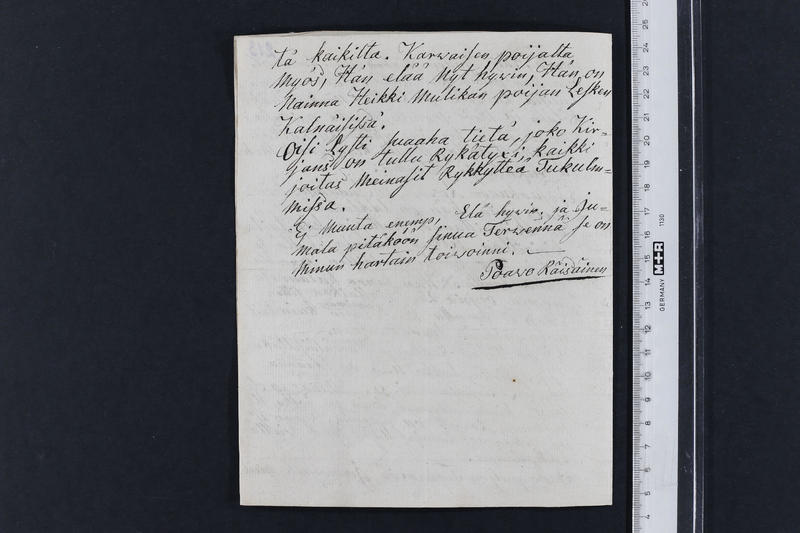 tä kaikilta. Karwaisen poijalta
myös, Hän elää Nyt hywin, Hän on
Nainna Heikki Mulikan poijan Lesken
Kalnäisissä.
Oisi Lysti suaaha tietä, joko Kir-
jans on tullu Rykätyxi, kaikki
joitas Meinasit Rykkytteä Tukulm-
missa.
Ej Muuta enempi, Elä hywin. ja Ju-
mala pitäköön sinua Terwennä se on
Minun hartain toiwoinni. —
Paawo Räisäinen
GERMANY M+R 1130
25
24
23
22
21
20
19
18
17
16
15
14
13
12
11
10
9
8
7
6
5
4